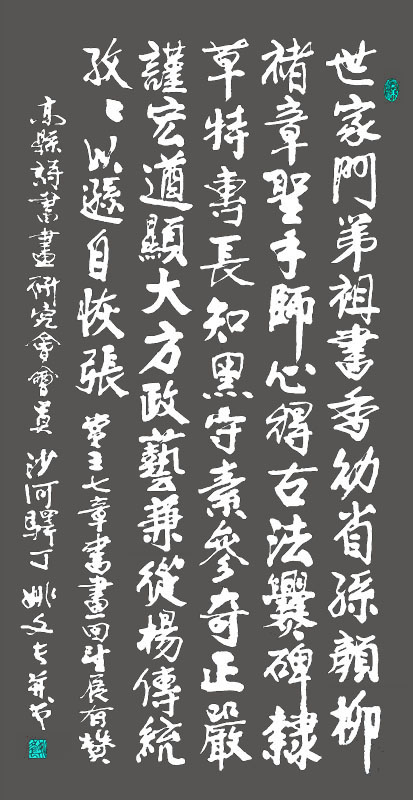 世家門弟祖書香幼省孫顏柳
褚章聖手師心得古法爨碑隸
草特專長知黑守素參奇正嚴
謹宏道顯大方政藝兼從楊傳統
孜々以遜自恢張 王七章書畫回展有贊
縣詩書畫研究會會員 沙河驛丁 姚文